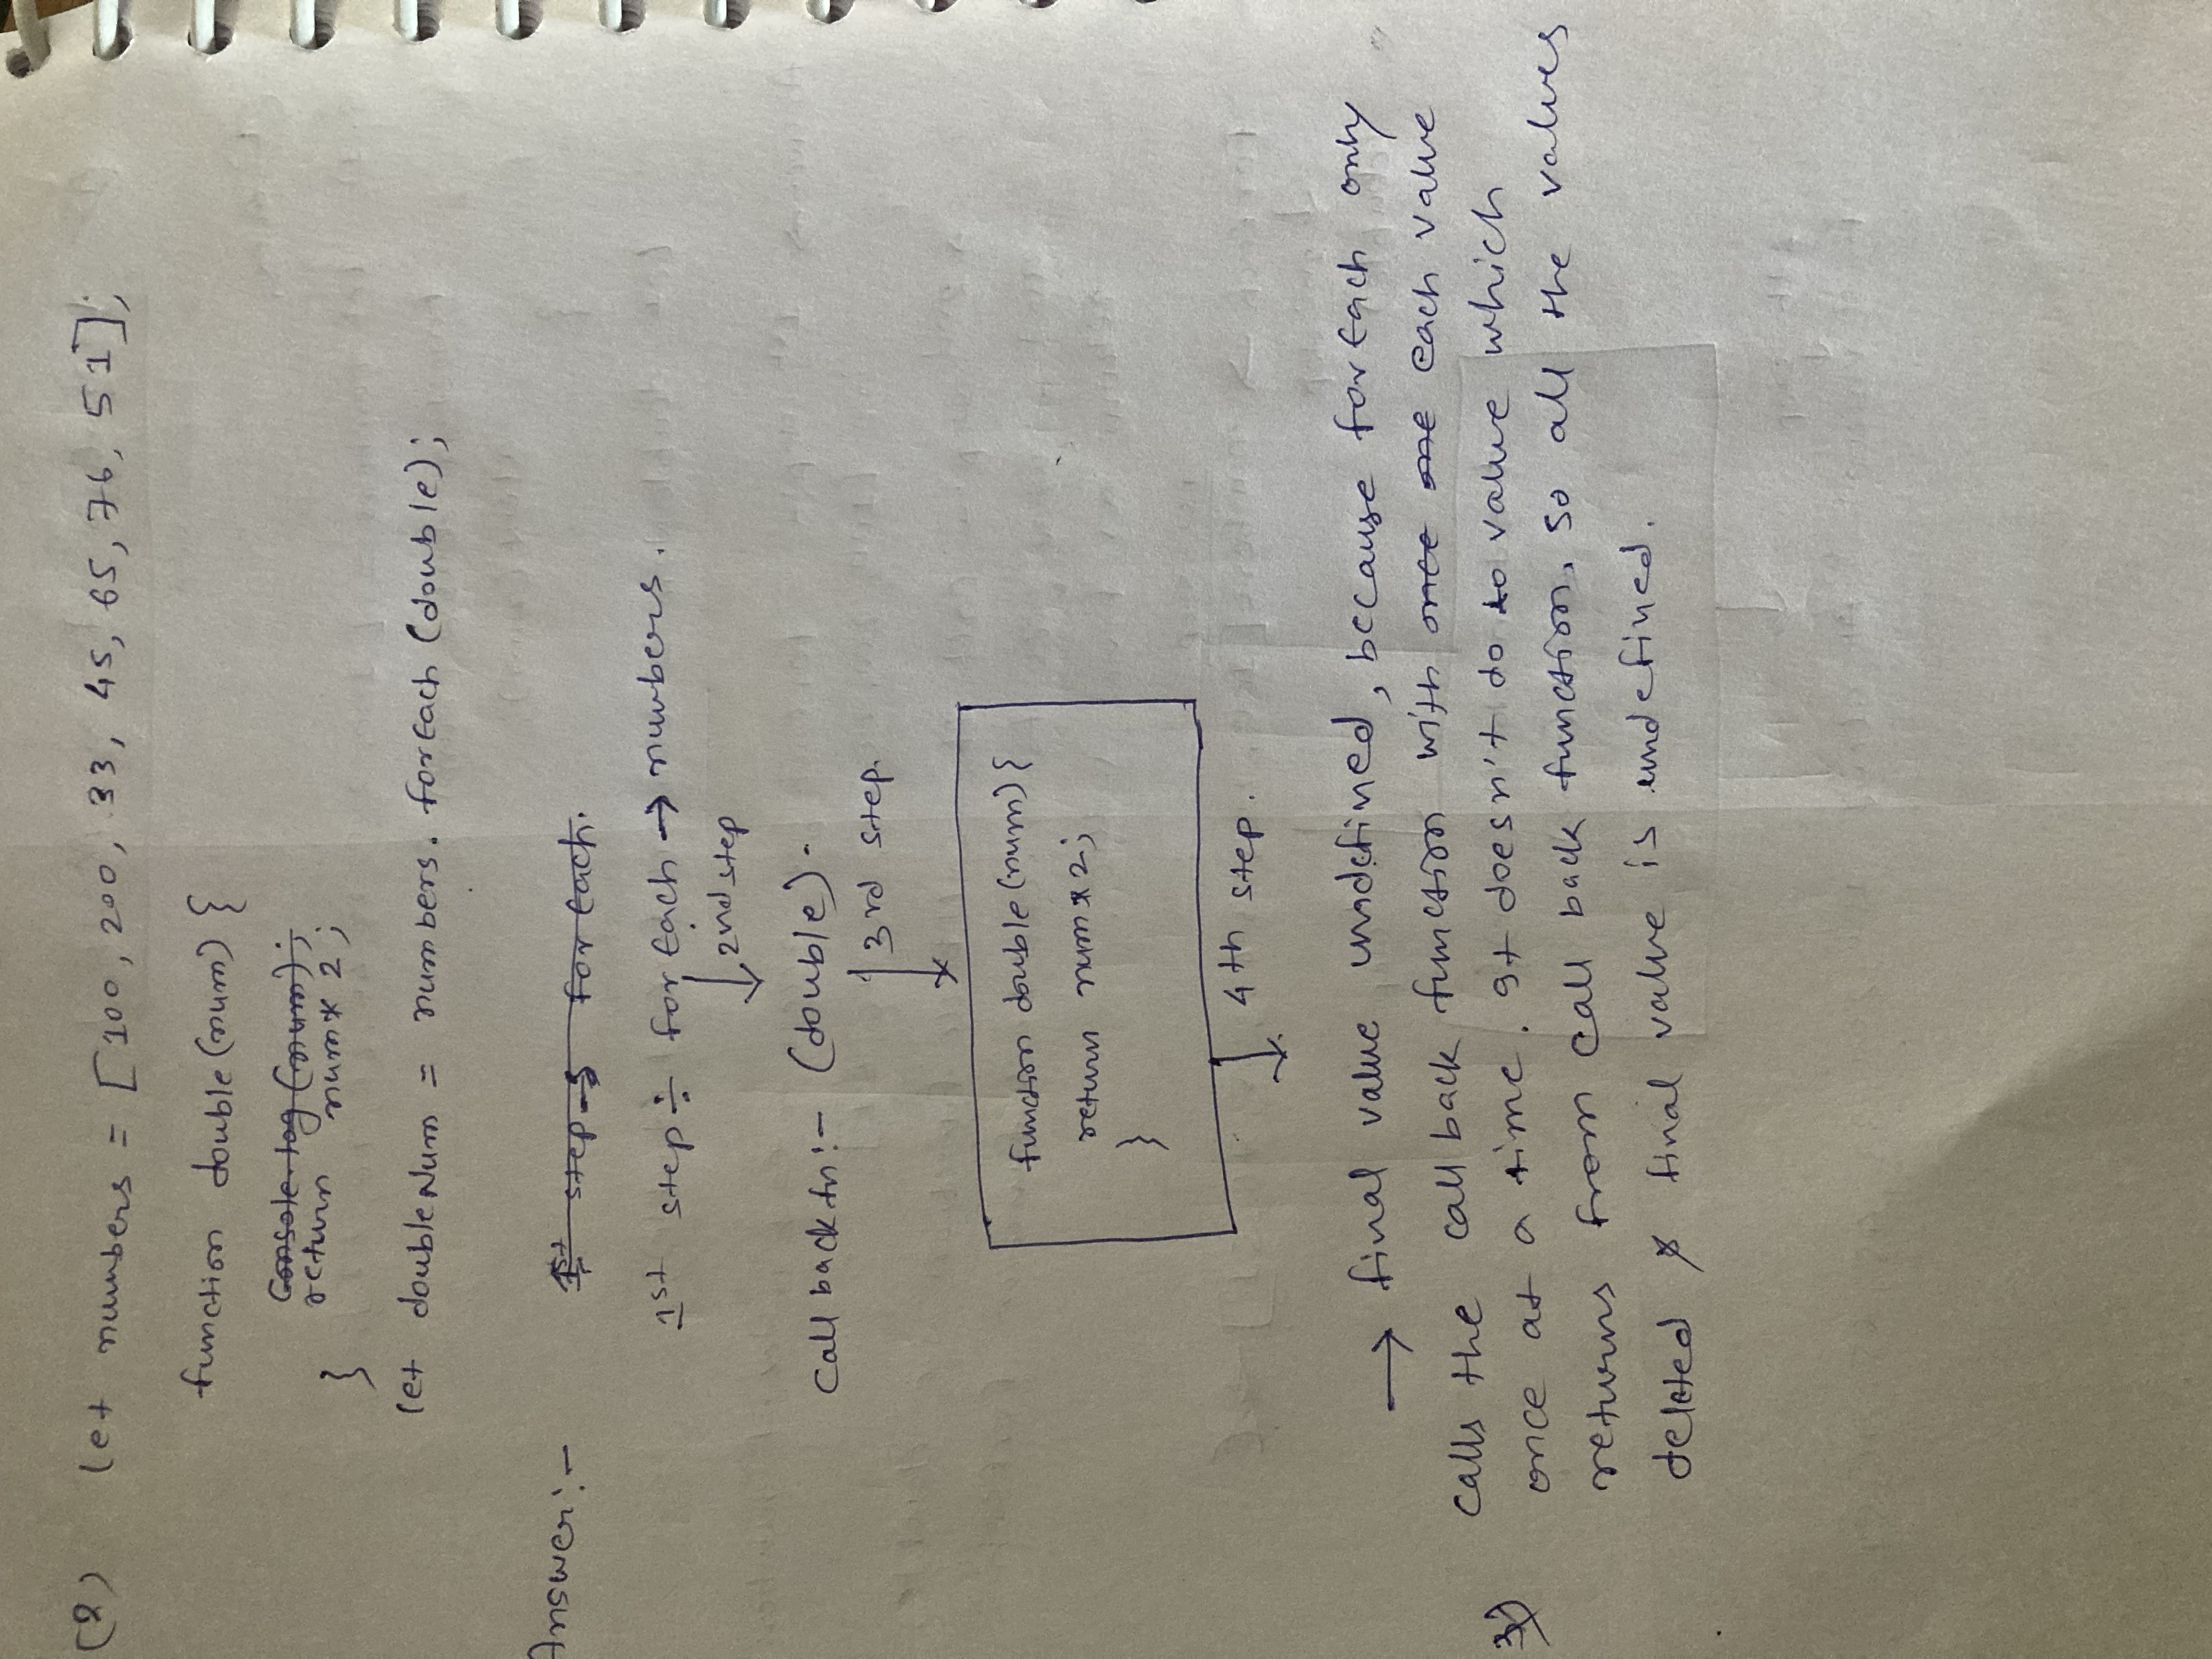 (2) let numbers = [100, 200, 33, 45, 65, 76, 51];
function double(num) {
Console.log(num);
return num * 2;
}
let doubleNum = numbers.forEach(double);
Answer:-
1st step → forEach.
1st step ÷ forEach → numbers.
↓ 2nd step
Call back fn:- (double).
↓ 3rd step.
function double(num) {
return num * 2;
}
↓ 4th step.
→ final value undefined, because forEach only
calls the call back function with once one each value
3) once at a time. It doesn't do to value which
returns from call back function, so all the values
deleted & final value is undefined.